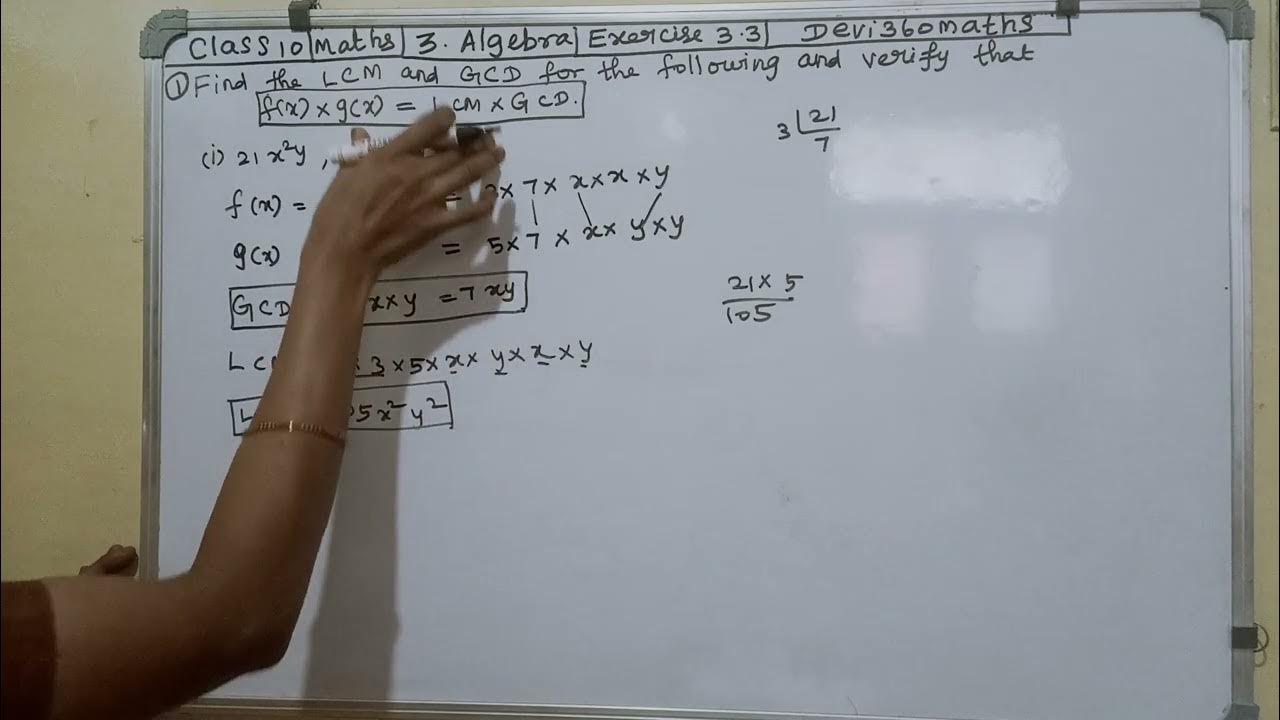 Class 10 | Maths | 3. Algebra | Exercise 3.3 | Devi360maths
① Find the LCM and GCD for the following and verify that
f(x) × g(x) = LCM × GCD.
3 | 21
7
(i) 21 x²y ,
f(x) = = × 7 × x × x × y
g(x) = 5 × 7 × x × y × y
GCD x × y = 7xy
21 × 5
105
LC × 3 × 5 × x × y × x × y
L 5x²y²